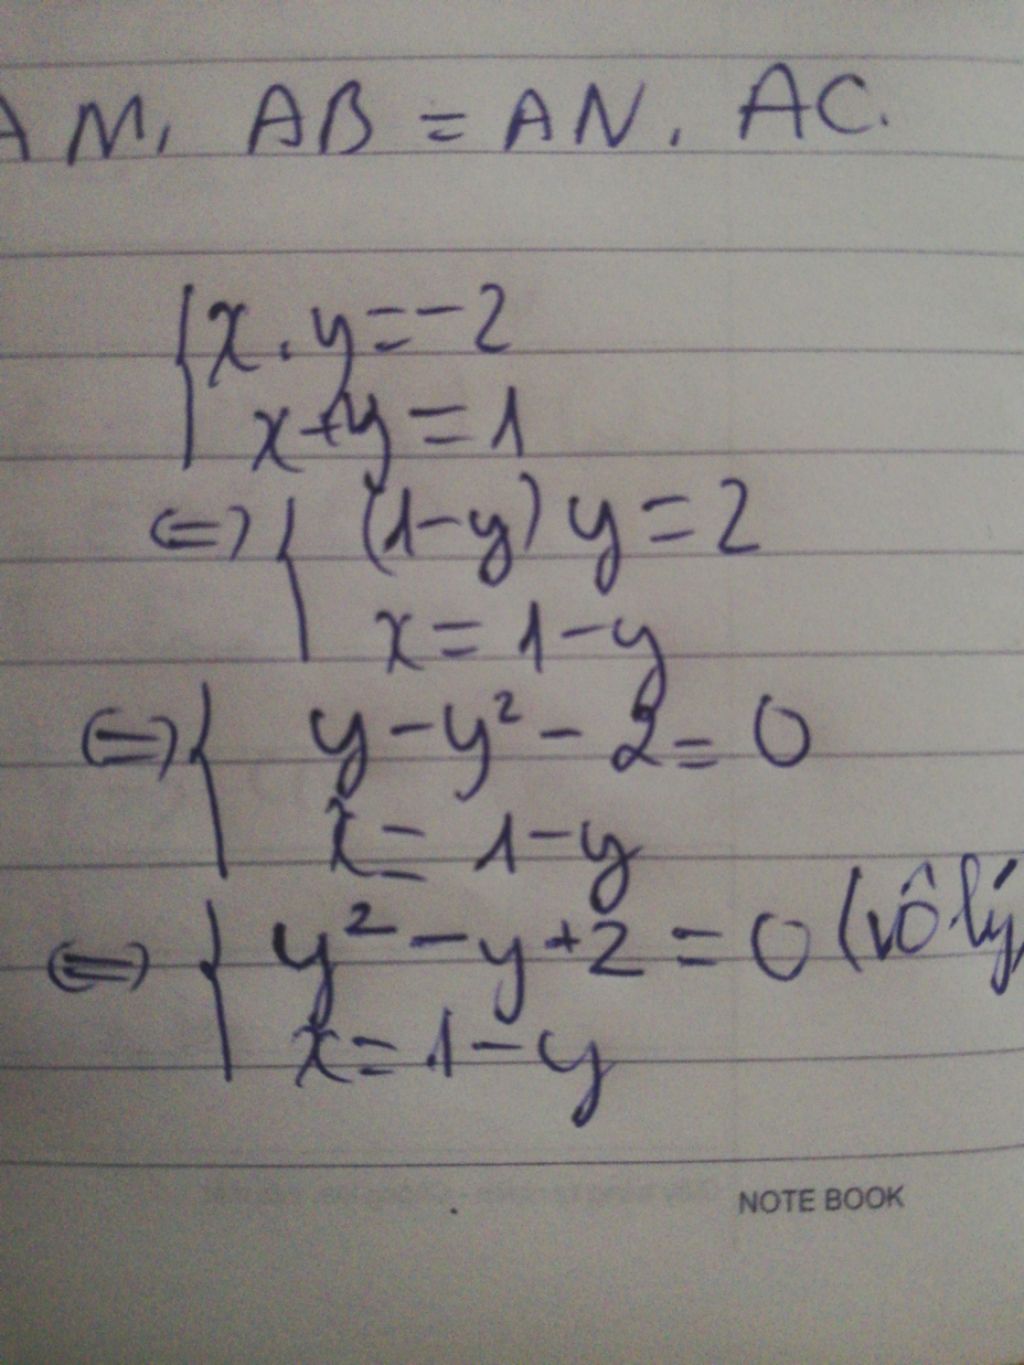 AM, AB = AN. AC.
{ x.y = -2
x+y = 1
<=> { (1-y) y = 2
x = 1-y
<=> { y - y² - 2 = 0
x = 1-y
<=> { y² - y + 2 = 0 (vô lý
x = 1-y
NOTE BOOK